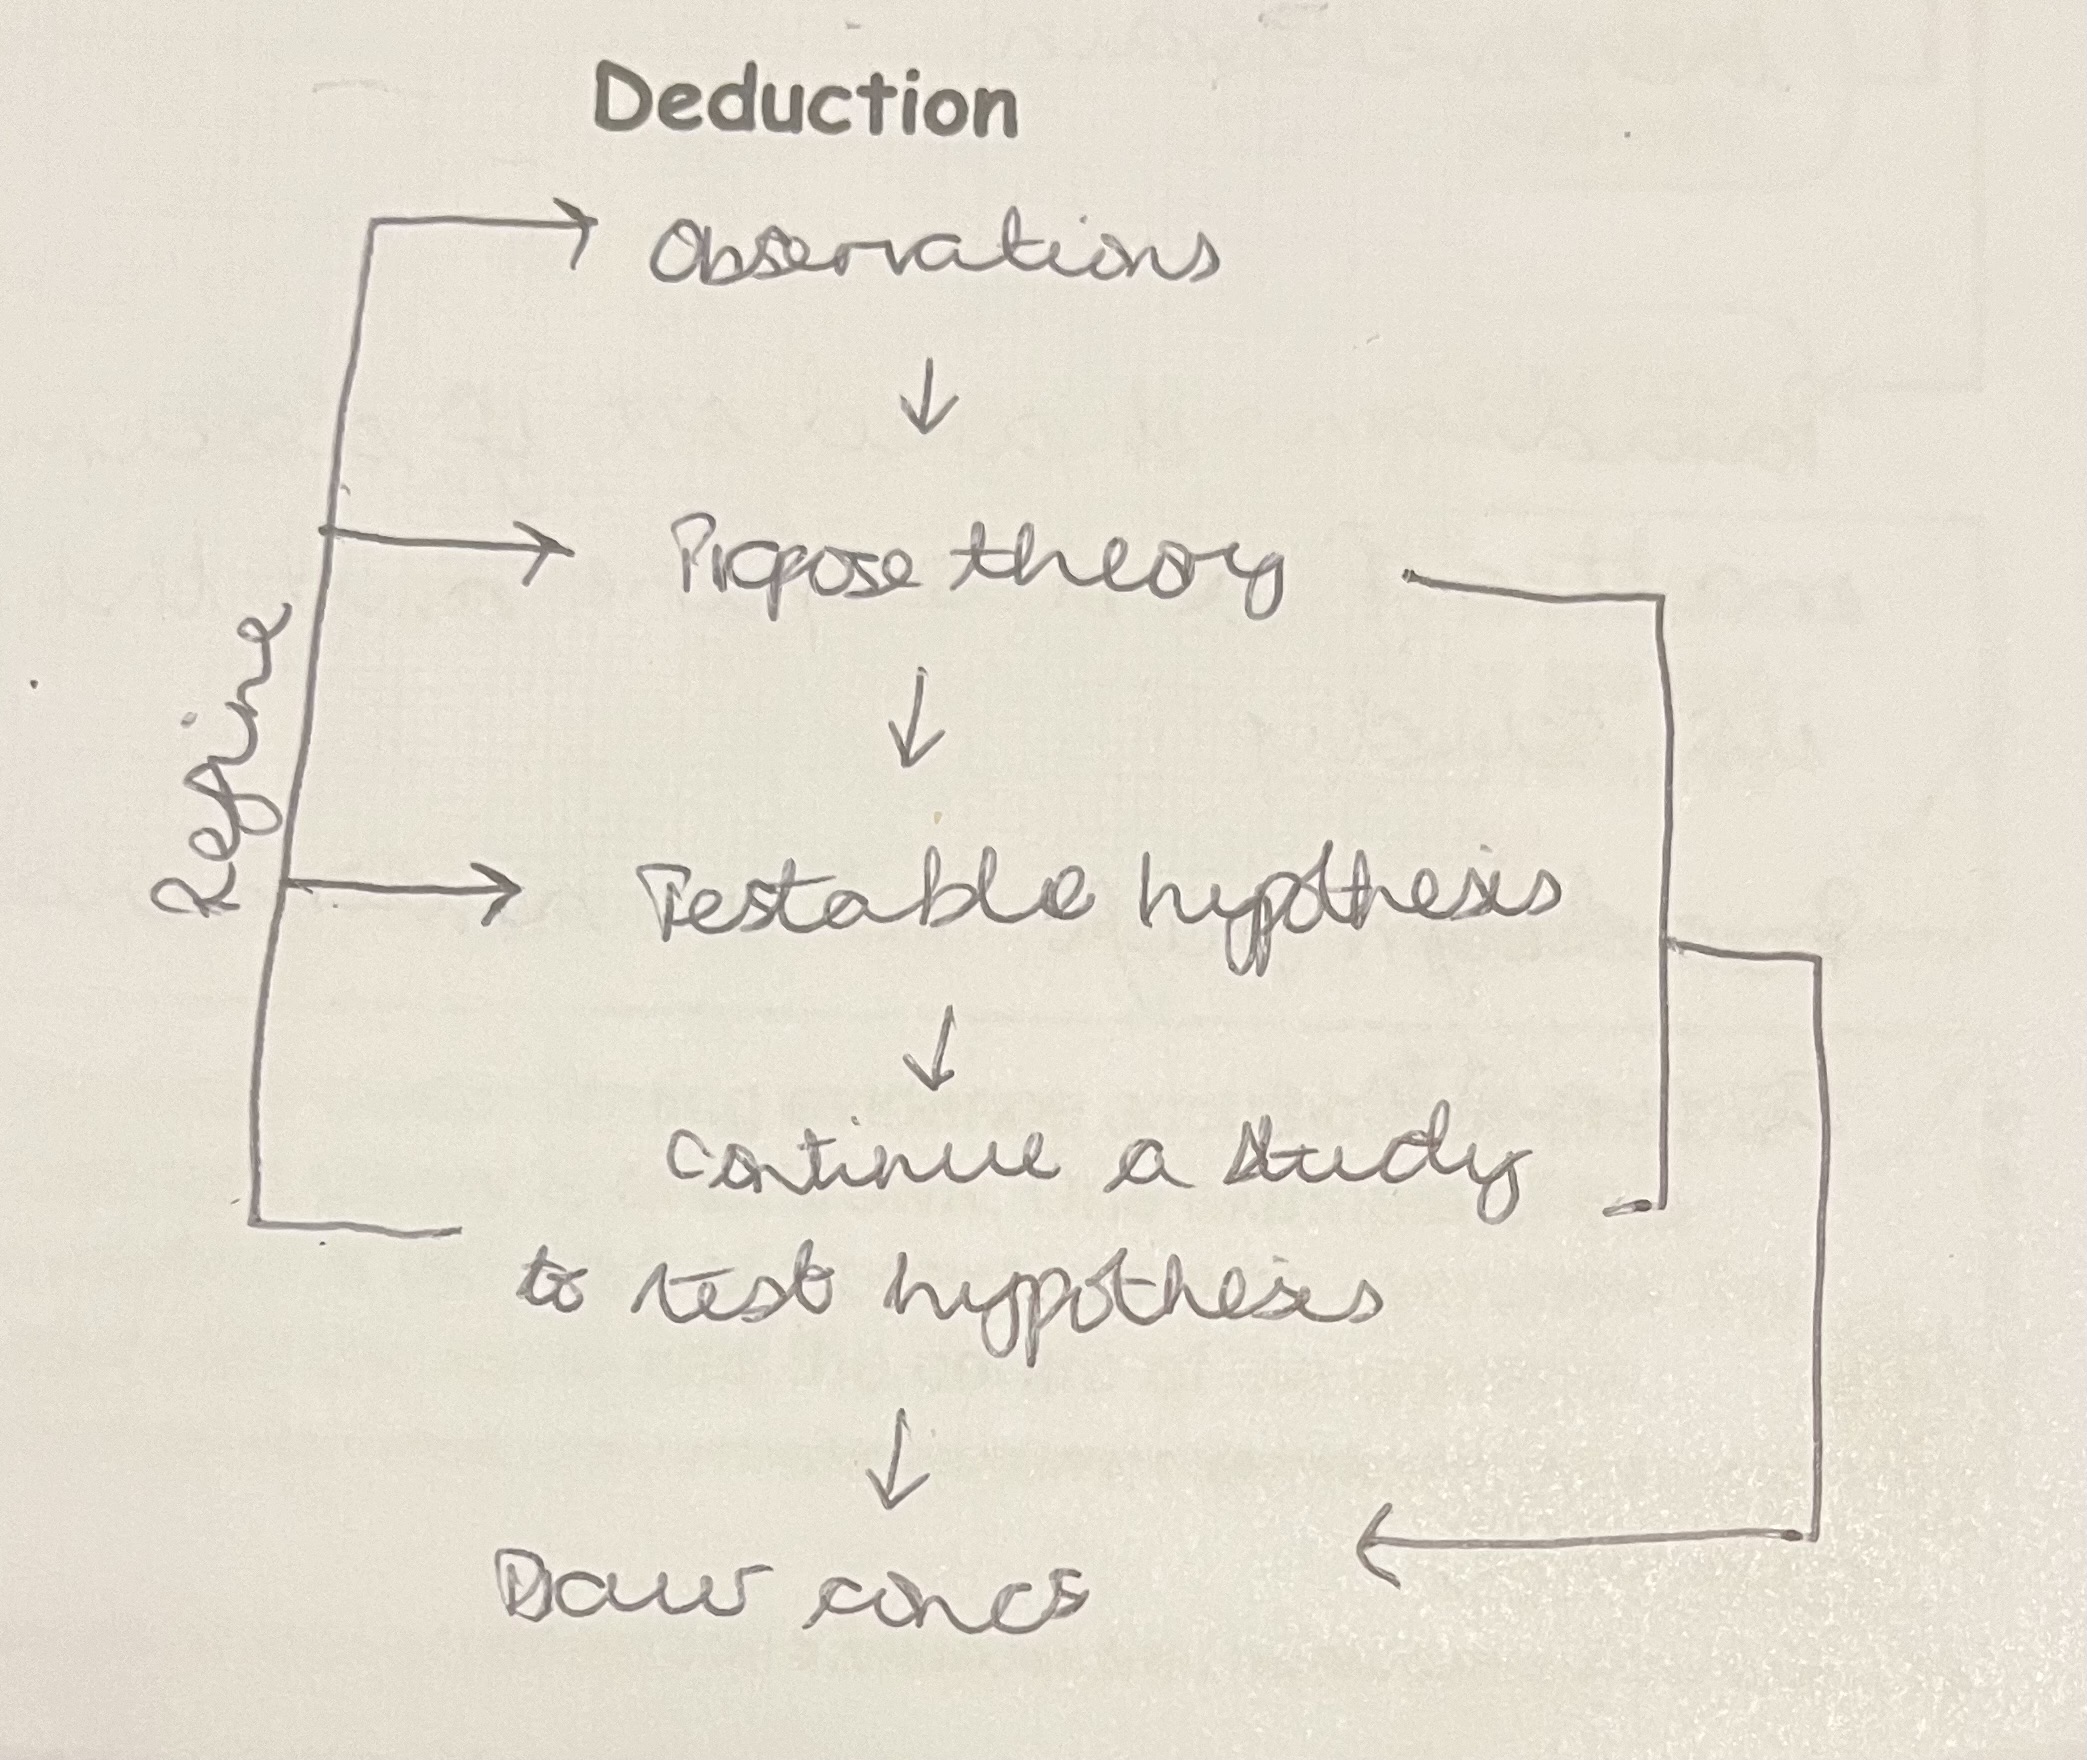 Deduction
Observations
Propose theory
Refine
Testable hypothesis
Continue a study
to test hypothesis
Draw concs